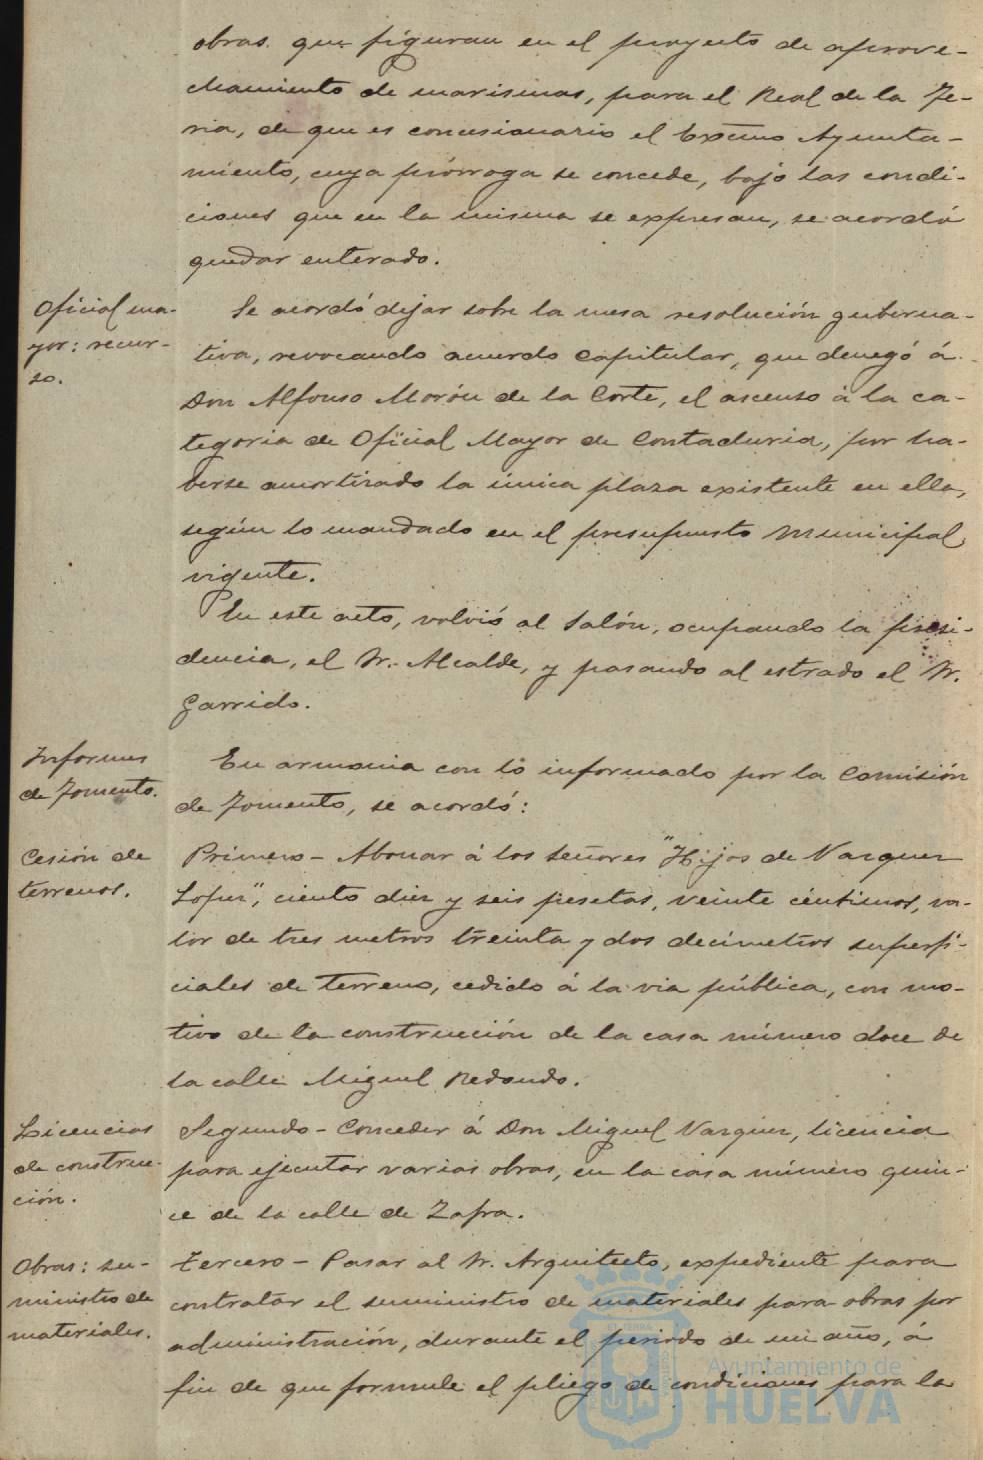 obras que figuran en el proyecto de aprove-
chamiento de marismas, para el Real de la Fe-
ria, de que es concesionario el Excmo Ayunta-
miento, cuya prórroga se concede, bajo las condi-
ciones que en la misma se expresan, se acordó
quedar enterado.
Oficial ma-
yor: recur-
so.
Se acordó dejar sobre la mesa resolución guberna-
tiva, revocando acuerdo capitular, que denegó á
Don Alfonso Morón de la Corte, el ascenso á la ca-
tegoria de Oficial Mayor de Contaduria, por ha-
berse amortizado la única plaza existente en ella,
según lo mandado en el presupuesto municipal
vigente.
En este acto, volvió al Salón, ocupando la presi-
dencia, el Sr. Alcalde, y pasando al estrado el Sr.
Garrido.
Informes
de Fomento.
En armonia con lo informado por la Comisión
de Fomento, se acordó:
Cesión de
terrenos.
Primero - Abonar á los señores "Hijos de Vazquez
Lopez", ciento diez y seis pesetas, veinte céntimos, va-
lor de tres metros treinta y dos decímetros superfi-
ciales de terreno, cedido á la via pública, con mo-
tivo de la construcción de la casa número doce de
la calle Miguel Redondo.
Licencias
de construc-
ción.
Segundo - Conceder á Don Miguel Vazquez, licencia
para ejecutar varias obras, en la casa número quin-
ce de la calle de Zafra.
Obras: su-
ministro de
materiales.
Tercero - Pasar al Sr. Arquitecto, expediente para
contratar el suministro de materiales para obras por
administración, durante el periodo de un año, á
fin de que formule el pliego de condiciones para la
Ayuntamiento de
HUELVA